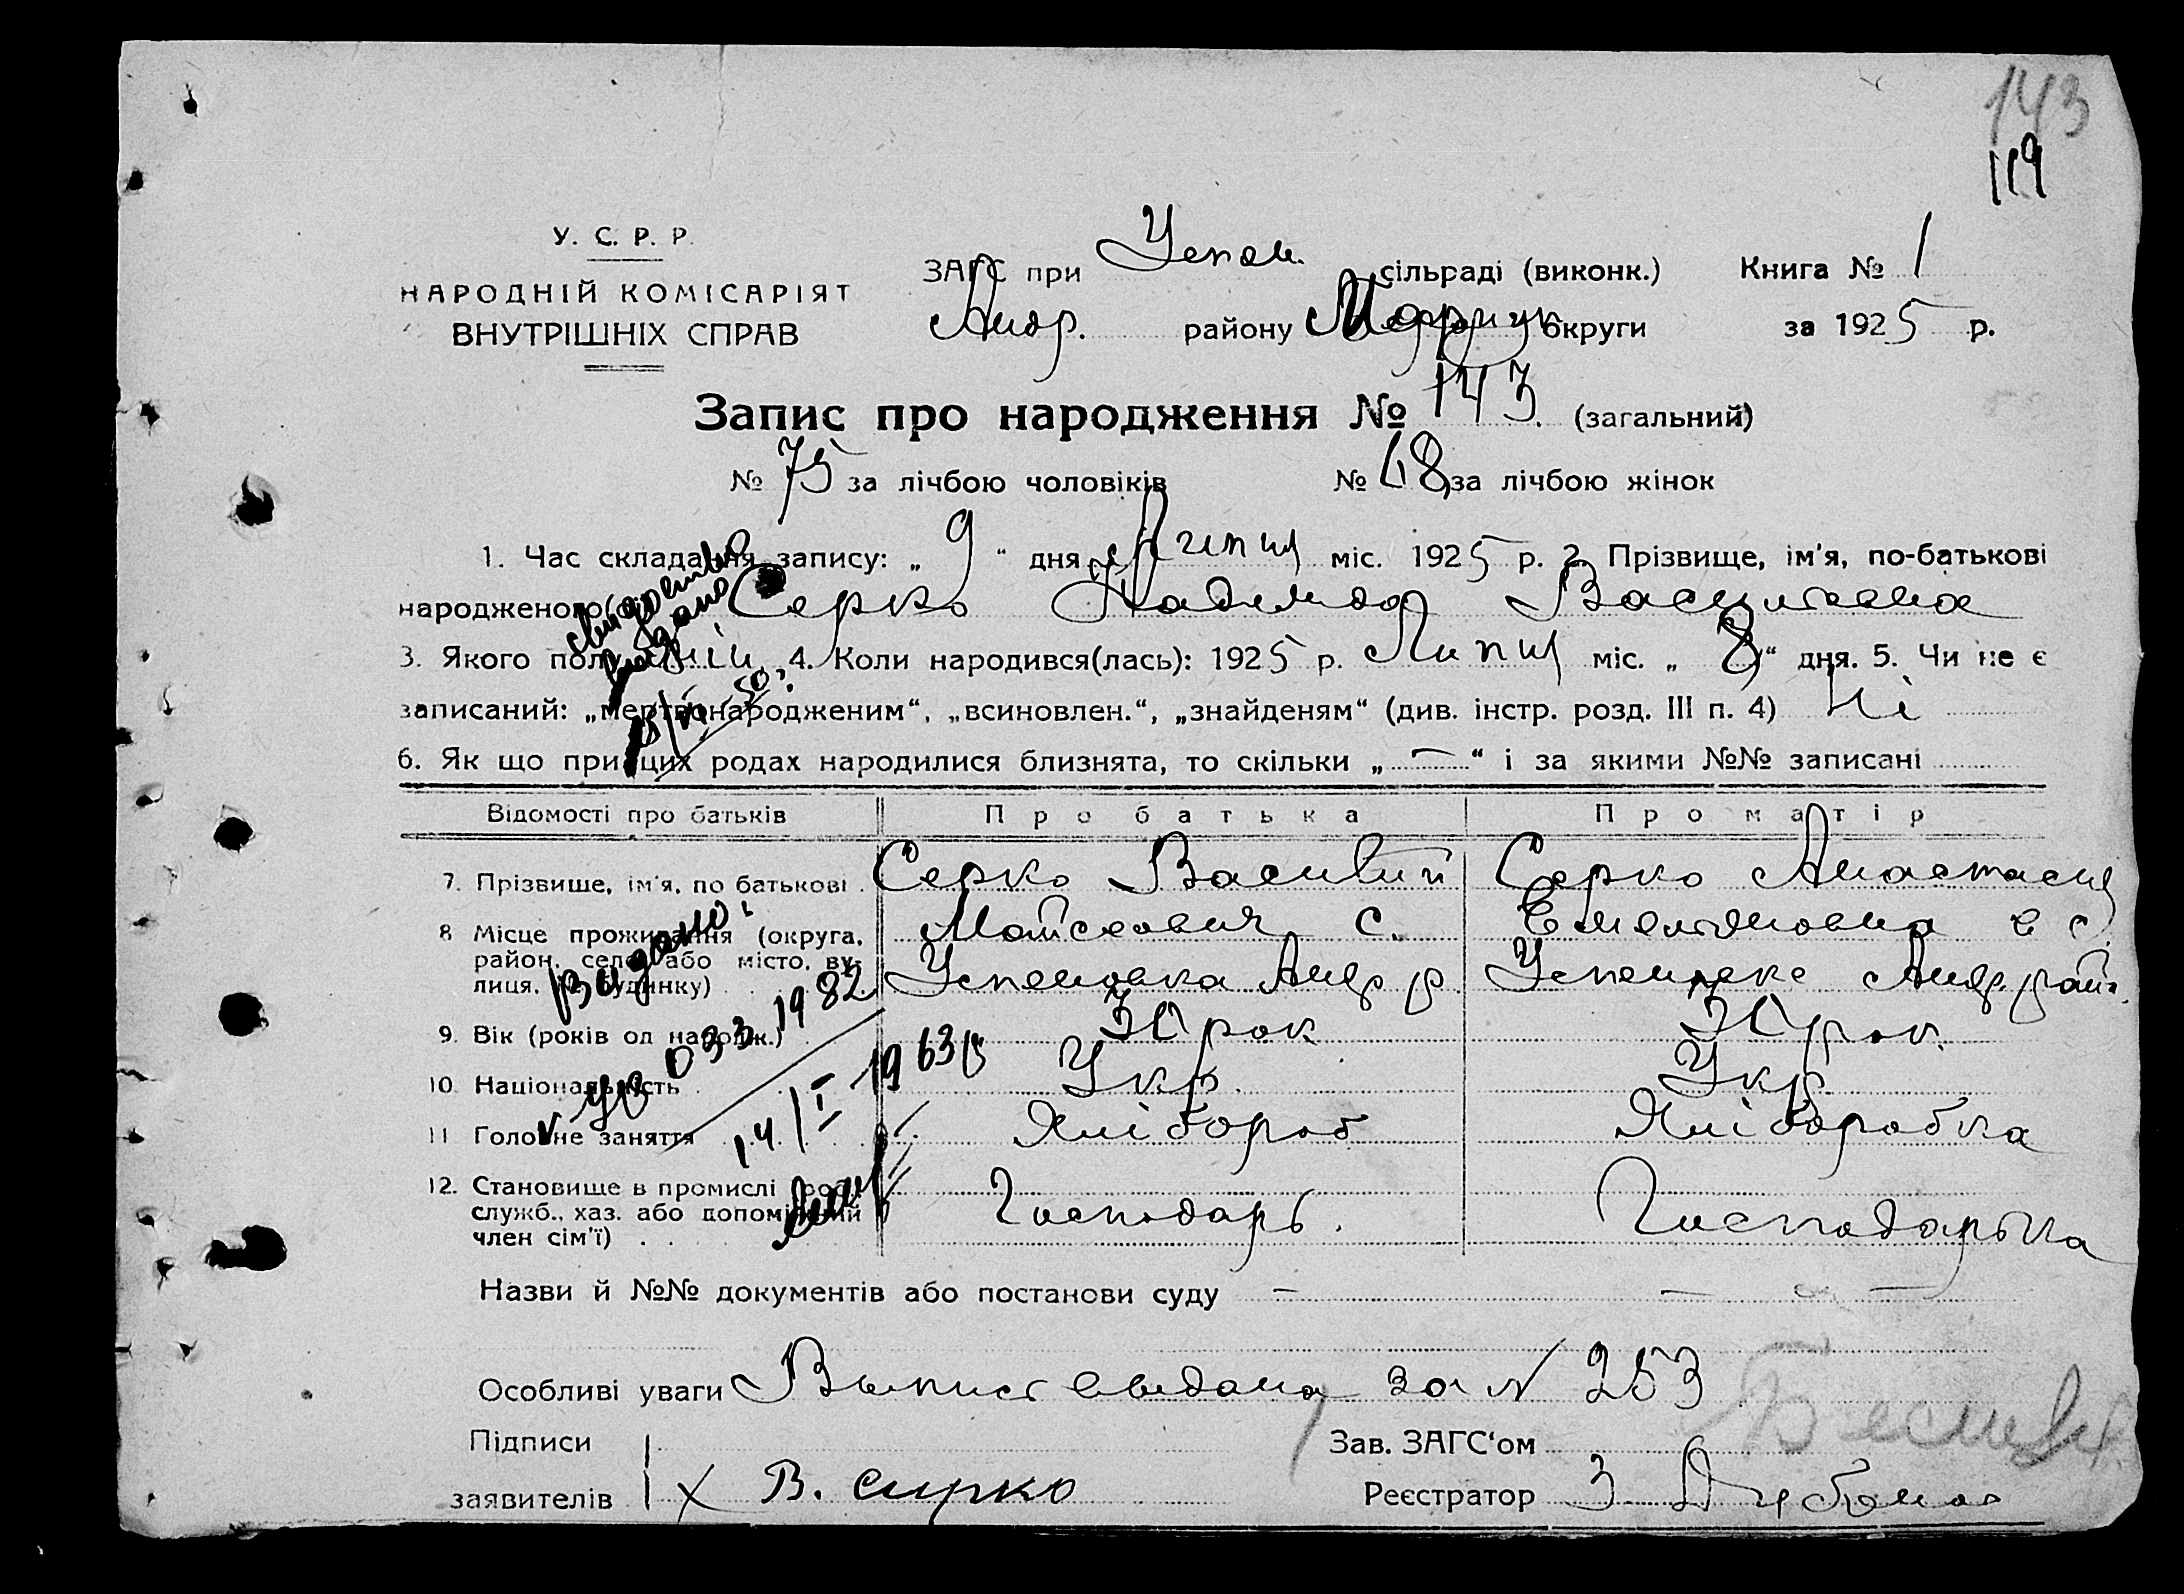 143
119
У. С. Р. Р.
НАРОДНІЙ КОМІСАРІЯТ
ВНУТРІШНІХ СПРАВ
ЗАГС при Успен. сільраді (виконк.) Книга № 1
Андр. району округи за 1925 р.
Запис про народження № 143. (загальний)
№ 75 за лічбою чоловіків № 68 за лічбою жінок
1. Час складання запису: „ 9 “ дня Липця міс. 1925 р. 2. Прізвище, ім'я, по-батькові
народженого( Серко Надежда Васильевна
3. Якого полу 4. Коли народився(лась): 1925 р. Липця міс. „ 8 “ дня. 5. Чи не є
записаний: „мертвонародженим“, „всиновлен.“, „знайденям“ (див. інстр. розд. III п. 4) Ні
6. Як що при цих родах народилися близнята, то скільки „ — “ і за якими №№ записані
свидоетво
видано
50
Відомості про батьків Про батька Про матір
7. Прізвище, ім'я, по батькові . Серко Василий Серко Анастасия
8 Місце проживання (округа, Мойсеович с. Емельяновна с
район, село або місто, ву- Успеновка Андр р. Андр. рай.
лиця, № будинку)
9. Вік (років од народж.) 30 рок 30 рок.
10. Національність Укр. Укр.
11 Головне заняття Хлібороб Хліборобка
12. Становище в промислі роб., Господарь. Господарька
служб., хаз. або допоміжний
член сім'ї)
видано
033 1982
14/I 1963
Назви й №№ документів або постанови суду —
Особливі уваги Выпись выдана за № 253
Підписи Зав. ЗАГС'ом
заявителів х В. сирко Реєстратор З